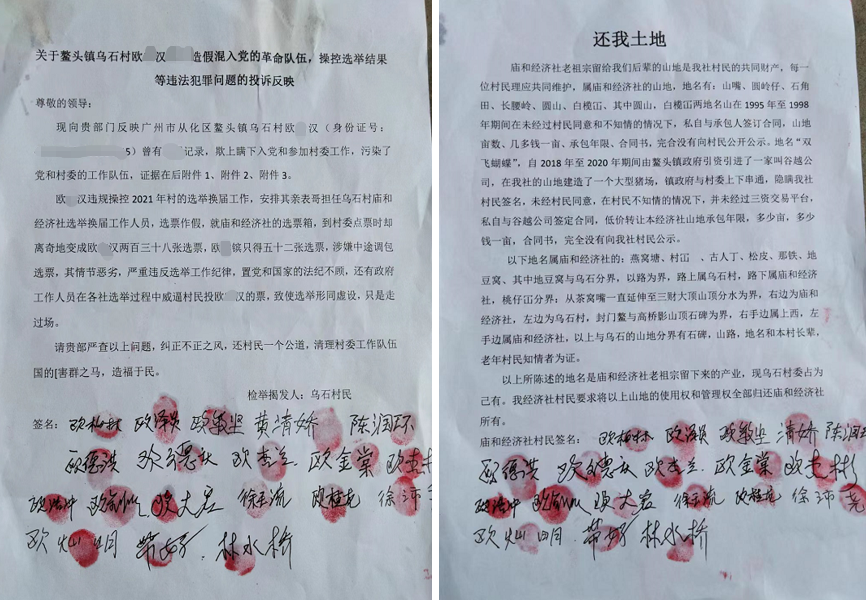 关于鳌头镇乌石村欧 汉 造假混入党的革命队伍，操控选举结果
等违法犯罪问题的投诉反映
尊敬的领导：
现向贵部门反映广州市从化区鳌头镇乌石村欧 汉（身份证号：
5）曾有 记录，欺上瞒下入党和参加村委工作，污染了
党和村委的工作队伍，证据在后附件 1、附件 2、附件 3。
欧 汉违规操控 2021 年村的选举换届工作，安排其亲表哥担任乌石村庙和
经济社选举换届工作人员，选票作假，就庙和经济社的选票箱，到村委点票时却
离奇地变成欧 汉两百三十八张选票，欧 镔只得五十二张选票，涉嫌中途调包
选票，其情节恶劣，严重违反选举工作纪律，置党和国家的法纪不顾，还有政府
工作人员在各社选举过程中威逼村民投欧 汉的票，致使选举形同虚设，只是走
过场。
请贵部严查以上问题，纠正不正之风，还村民一个公道，清理村委工作队伍
国的[害群之马，造福于民。
检举揭发人：乌石村民
签名： 欧敏坚 黄清娇 陈润环
欧德洪 欧金棠
欧大宏 欧桂龙
欧灿明 带好 林水桥
还我土地
庙和经济社老祖宗留给我们后辈的山地是我社村民的共同财产，每一
位村民理应共同维护，属庙和经济社的山地，地名有：山嘴、圆岭仔、石角
田、长腰岭、圆山、白榄㘭、其中圆山，白榄㘭两地名山在 1995 年至 1998
年期间在未经过村民同意和不知情的情况下，私自与承包人签订合同，山地
亩数、几多钱一亩、承包年限、合同书，完合没有向村民公开公示。地名“双
飞蝴蝶”，自 2018 年至 2020 年期间由鳌头镇政府引资引进了一家叫谷越公
司，在我社的山地建造了一个大型猪场，镇政府与村委上下串通，隐瞒我社
村民签名，未经村民同意，在村民不知情的情况下，并未经过三资交易平台，
私自与谷越公司签定合同，低价转让本经济社山地承包年限，多少亩，多少
钱一亩，合同书，完全没有向我社村民公示。
以下地名属庙和经济社的：燕窝塘、村㘭 、古人丁、松皮、那铁、地
豆窝、其中地豆窝与乌石分界，以路为界，路上属乌石村，路下属庙和经济
社，桃仔㘭分界；从茶窝嘴一直延伸至三财大顶山顶分水为界，右边为庙和
经济社，左边为乌石村，封门鳌与高桥影山顶石碑为界，右手边属上西，左
手边属庙和经济社，以上与乌石的山地分界有石碑，山路，地名和本村长辈，
老年村民知情者为证。
以上所陈述的地名是庙和经济社老祖宗留下来的产业，现乌石村委占为
己有。我经济社村民要求将以上山地的使用权和管理权全部归还庙和经济社
所有。
庙和经济社村民签名： 欧敏坚 清娇 陈润
欧德洪 欧金棠
欧大宏 欧桂龙
欧灿明 带好 林水桥